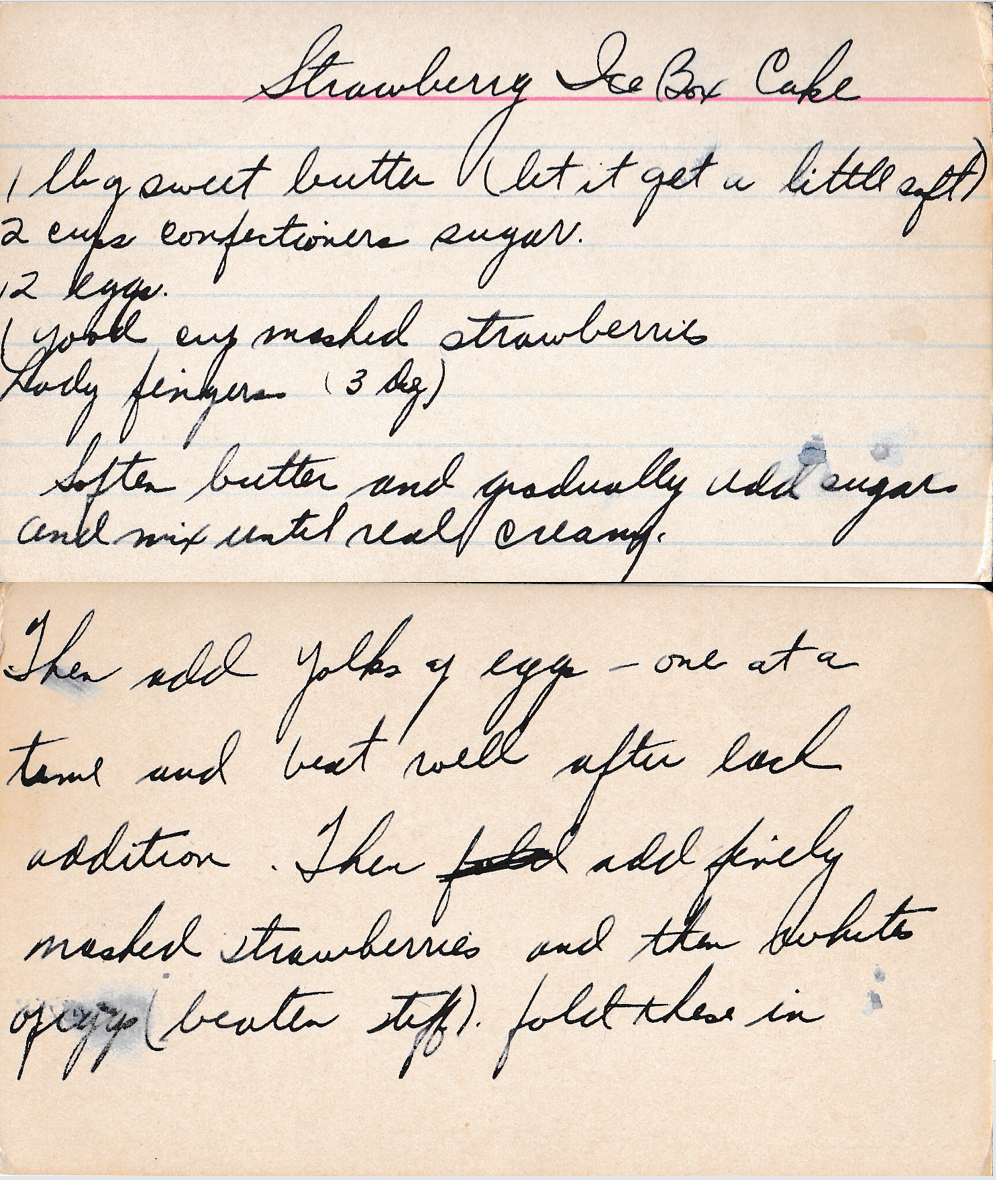 Strawberry Ice Box Cake
1 lb of sweet butter (let it get a little soft)
2 cups confectioners sugar.
12 eggs.
1 good cup mashed strawberries
Lady fingers (3 dz)
Soften butter and gradually add sugar
and mix until real creamy.
Then add yolks of eggs – one at a
time and beat well after each
addition. Then add finely
mashed strawberries and then whites
of eggs (beaten stiff). fold these in